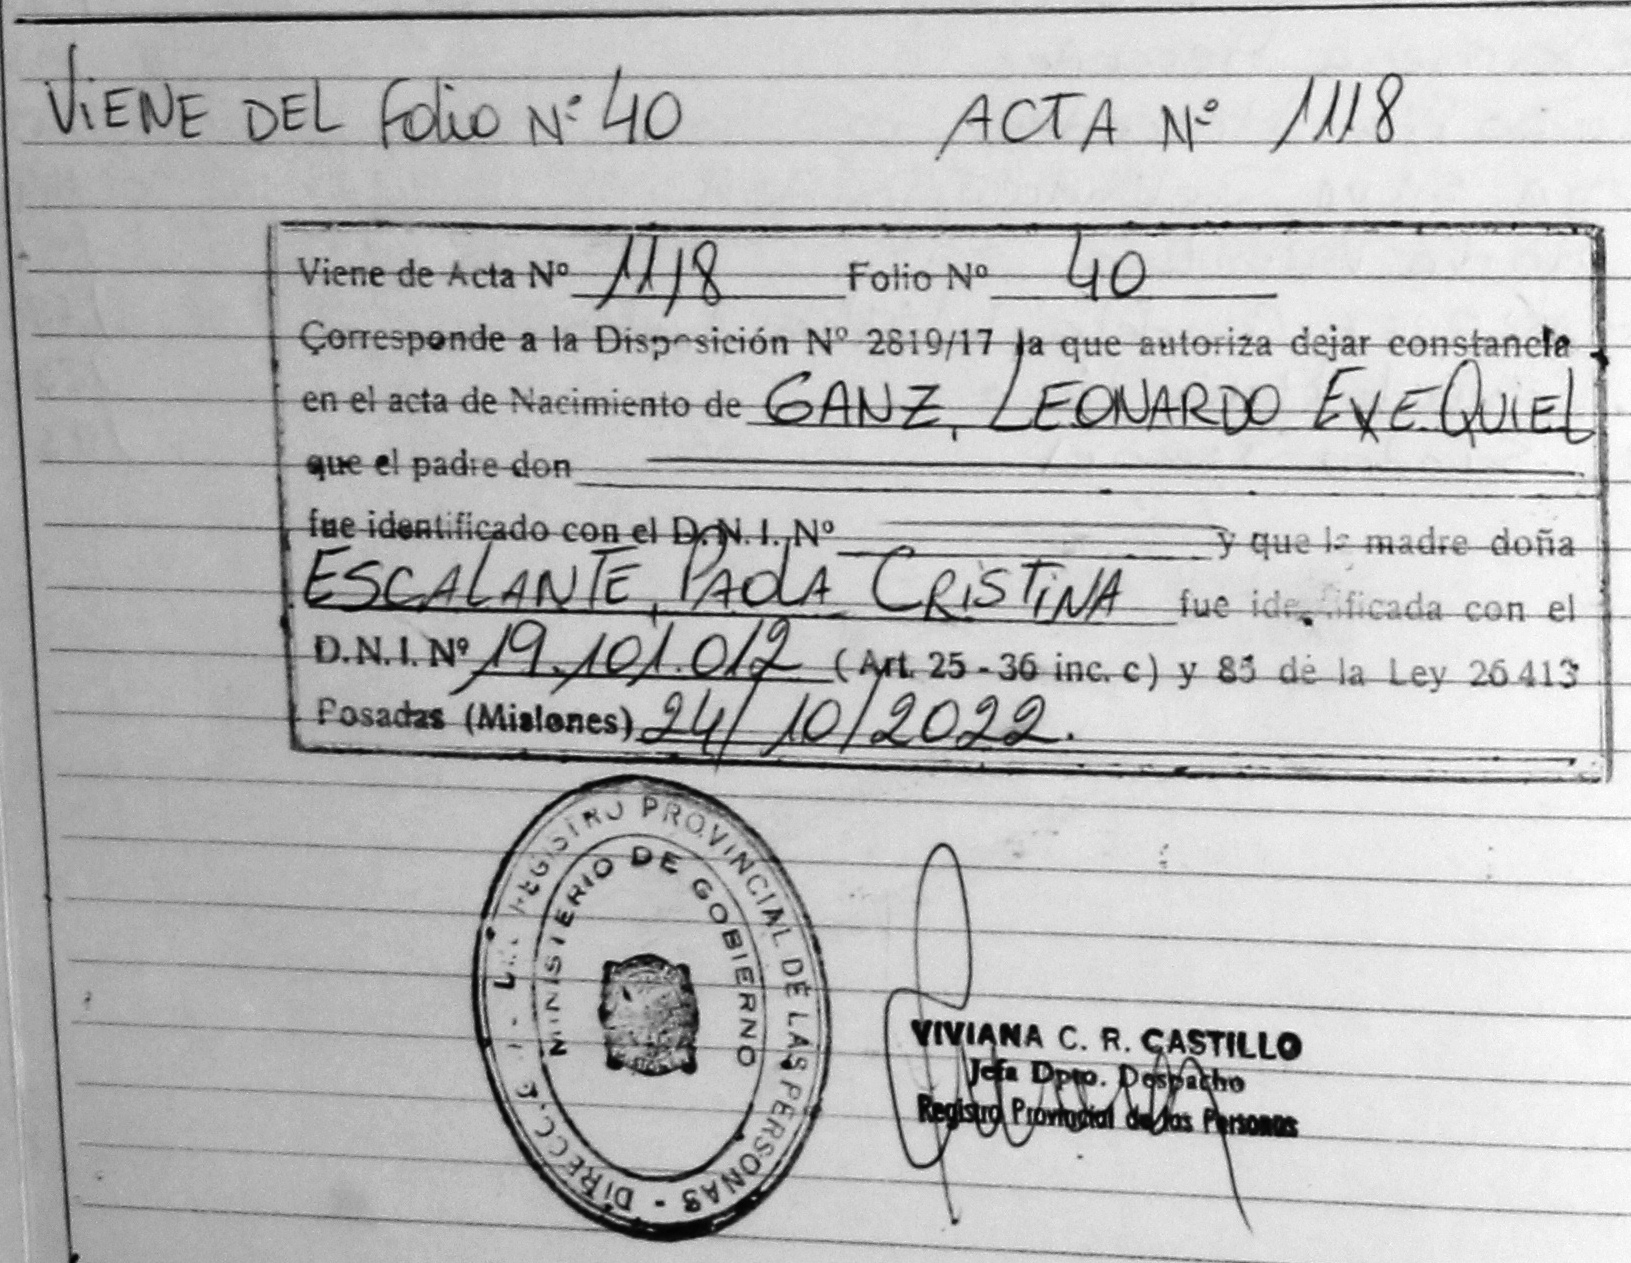 ViENE DEL Folio Nº 40 ACTA Nº 1118
Viene de Acta Nº 1118 Folio Nº 40
Corresponde a la Disposición Nº 2819/17 la que autoriza dejar constancia
en el acta de Nacimiento de GANZ, LEONARDO EXEQUIEL
que el padre don
fue identificado con el D.N.I. Nº y que la madre doña
ESCALANTE, PAOLA CRiSTiNA fue identificada con el
D.N.I. Nº 19.101.012 (Art. 25 - 36 inc. c) y 85 de la Ley 26413
Posadas (Misiones) 24/10/2022.
REGISTRO PROVINCIAL DE LAS PERSONAS - DIRECC.
MINISTERIO DE GOBIERNO
VIVIANA C. R. CASTILLO
Jefa Dpto. Despacho
Registro Provincial de las Personas